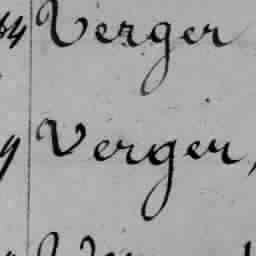 Verger
Verger,